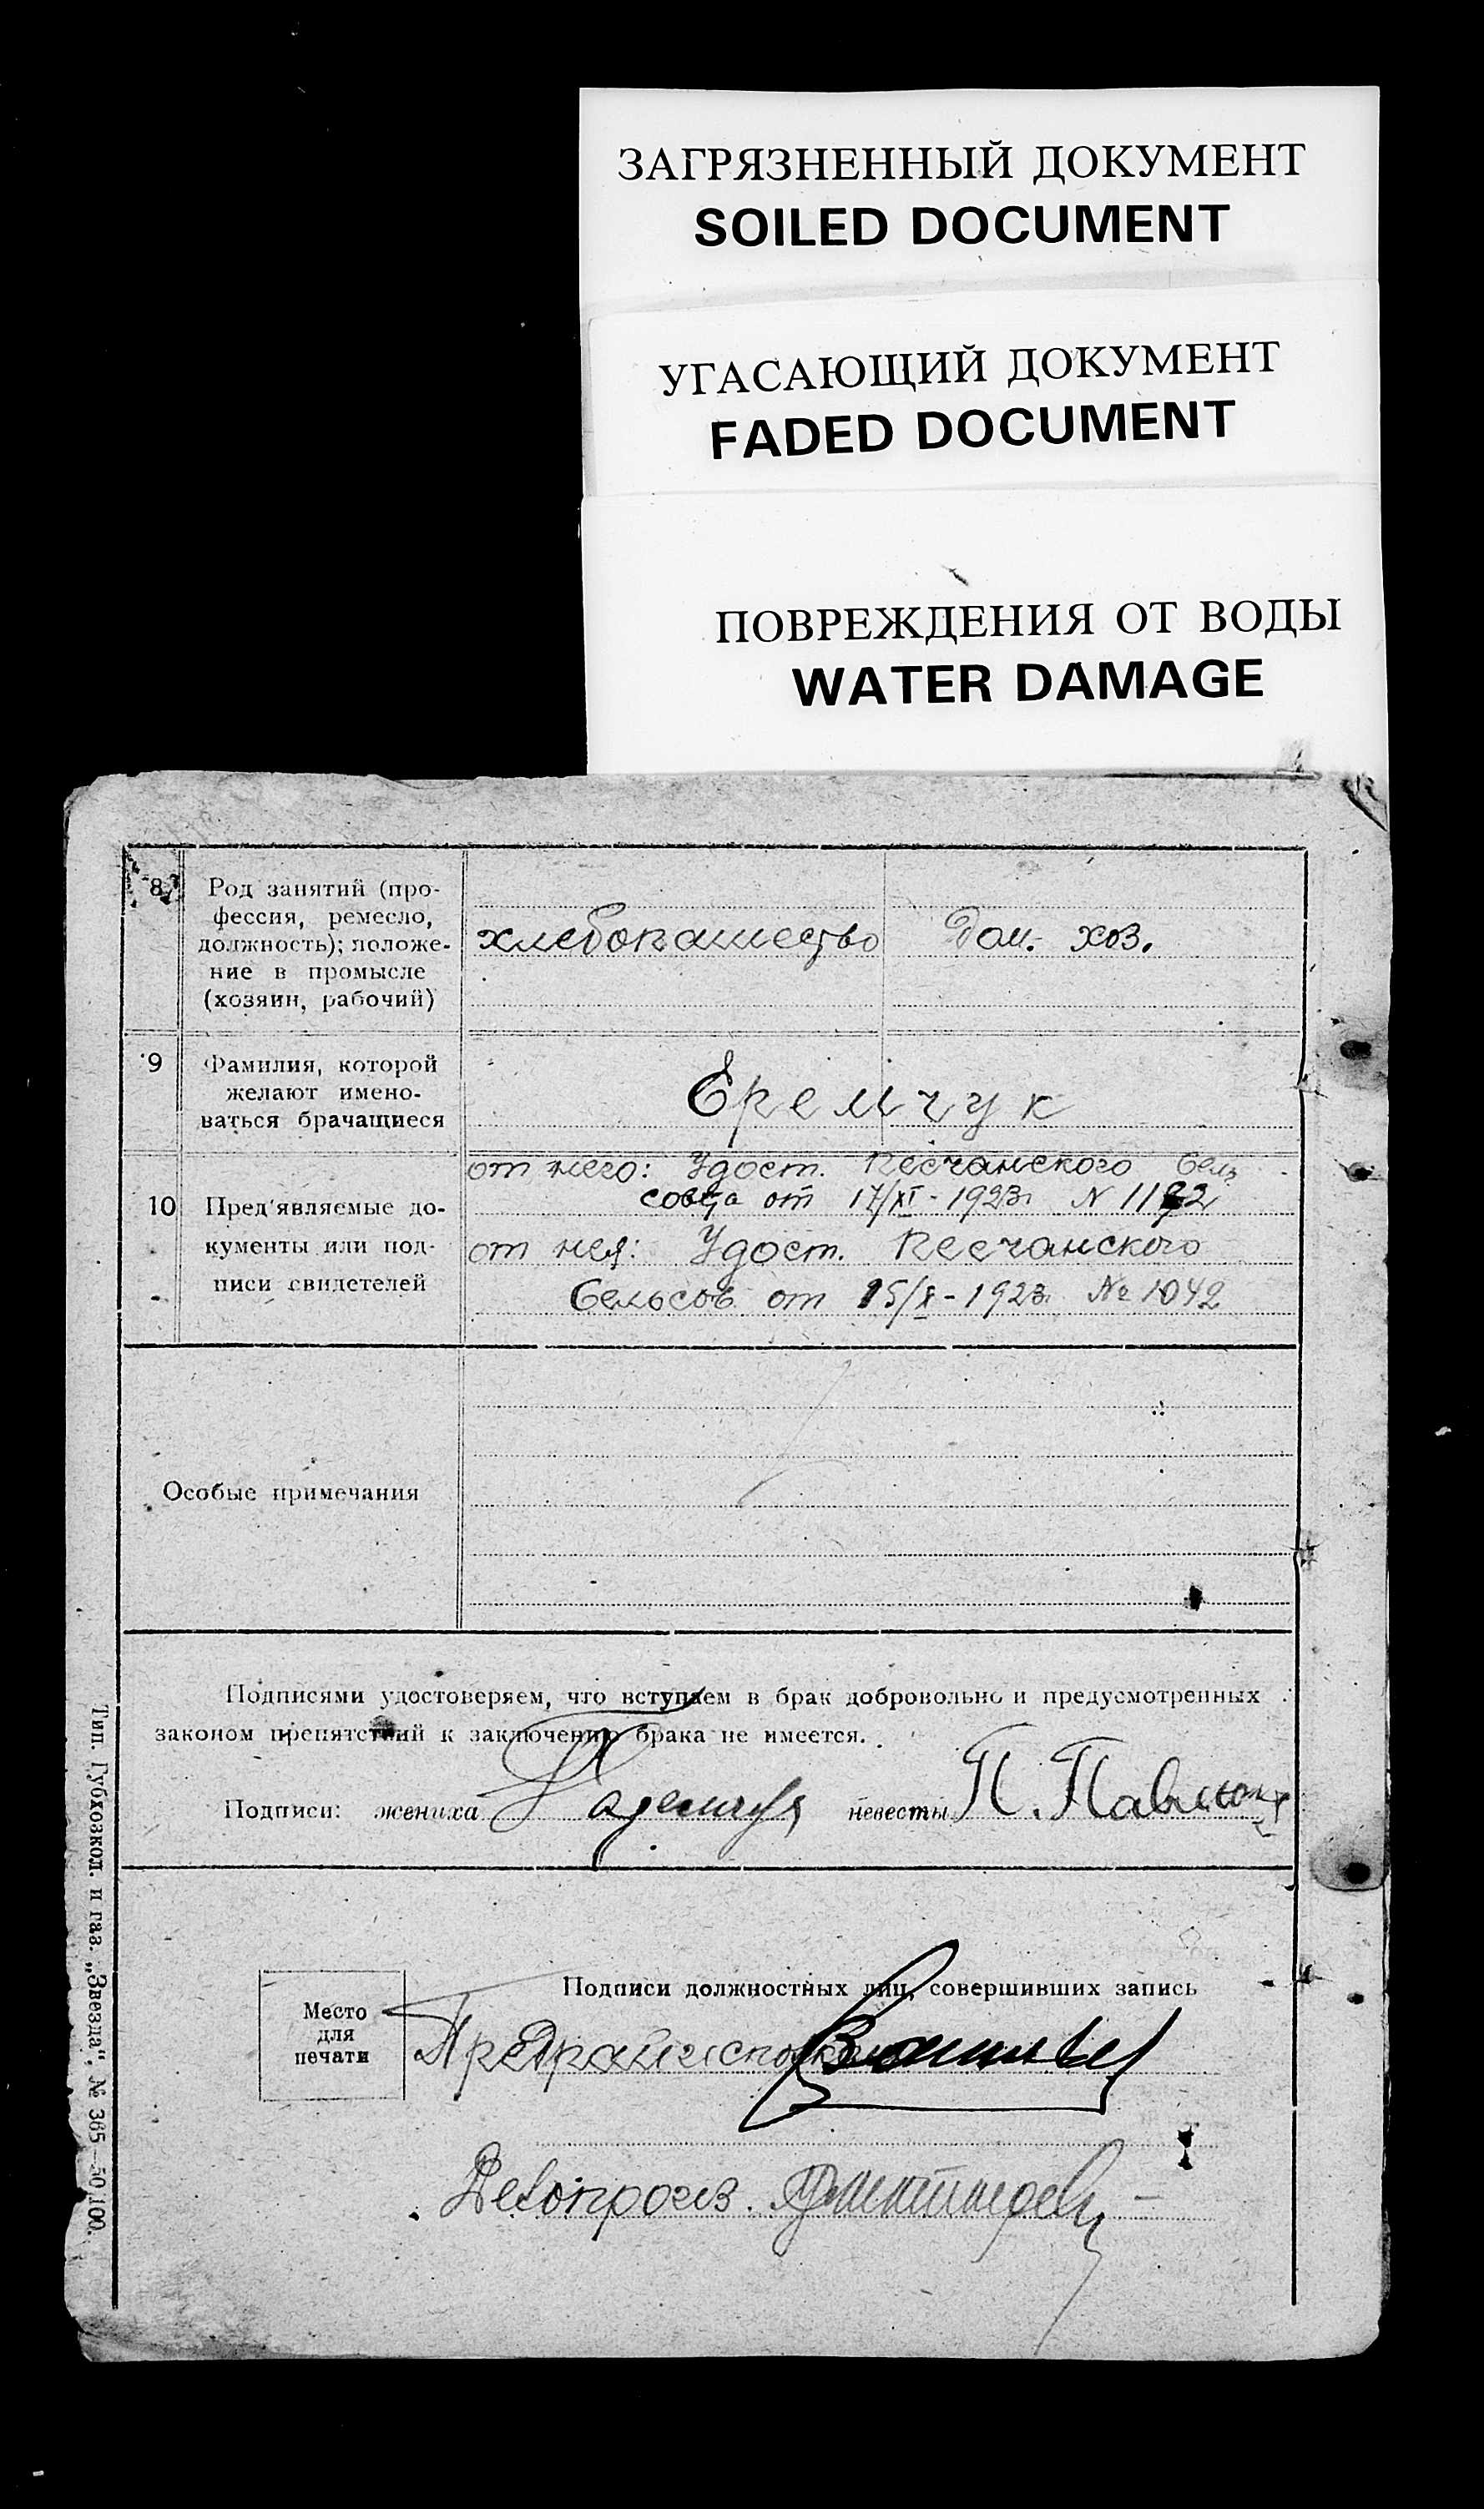 ЗАГРЯЗНЕННЫЙ ДОКУМЕНТ
SOILED DOCUMENT
УГАСАЮЩИЙ ДОКУМЕНТ
FADED DOCUMENT
ПОВРЕЖДЕНИЯ ОТ ВОДЫ
WATER DAMAGE
8
Род занятий (про-
фессия, ремесло,
должность); положе-
ние в промысле
(хозяин, рабочий)
хлебопашество
Дом. хоз.
9
Фамилия, которой
желают имено-
ваться брачащиеся
Еремчук
10
Пред'являемые до-
кументы или под-
писи свидетелей
от него: Удост. Песчанского Сель
совета от 17/XI - 1923 г. N
от нея: Удост. Песчанского
Сельсов. от 15/X - 1923 г. № 1042
Особые примечания
Подписями удостоверяем, что вступаем в брак добровольно и предусмотренных
законом препятствий к заключению брака не имеется.
Подписи: жениха невесты П. Павлюк
Подписи должностных лиц, совершивших запись
Место
для
печати
Предрайисполкома
Делопроиз.
Тип. Губхозкол. и газ. „Звезда", № 365—50.100.